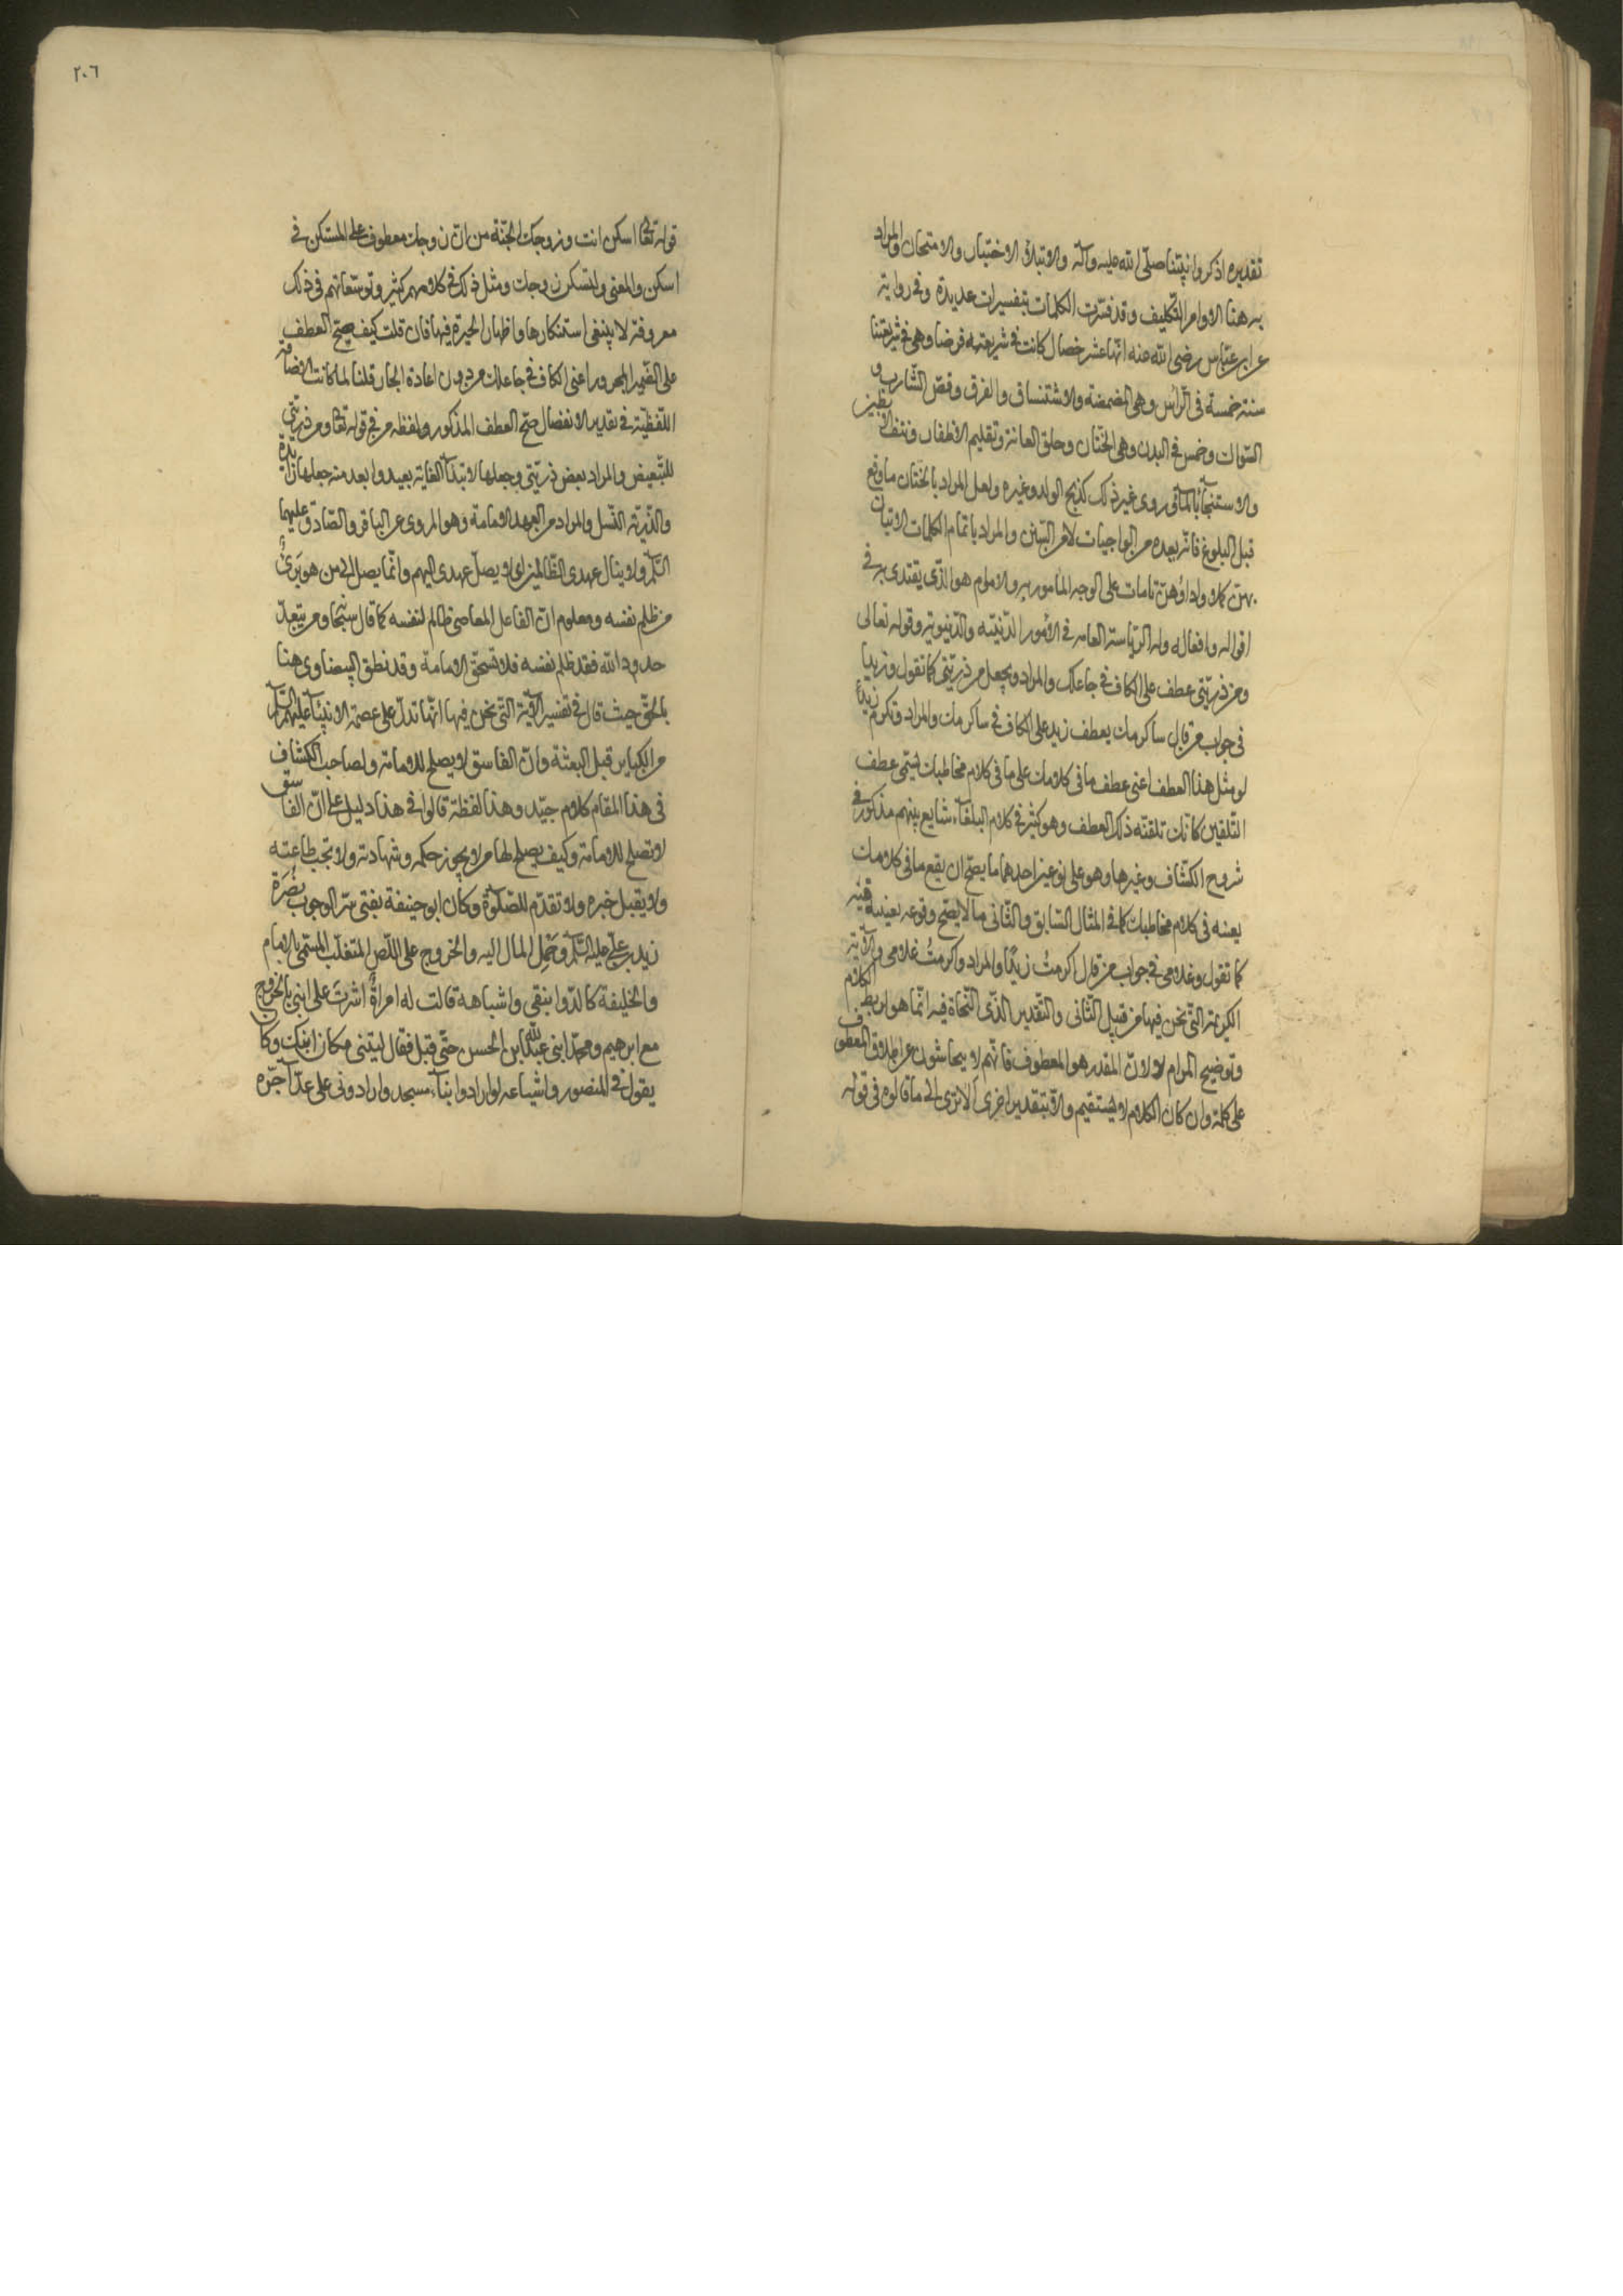 تقديره اذكروا نبيّنا صلّى الله عليه وآله والابتلاء الاختبار والامتحان والمراد
به هنا الاوامر والتكليف وقد فسّرت الكلمات بتفسيرات عديدة وفى رواية
عن ابن عبّاس رضى الله عنه انّها عشر خصال كانت فى شريعته فرضا وهى فى شريعتنا
سنة خمسة فى الرّأس وهى المضمضة والاستنشاق والفرق وقصّ الشّارب و
السّواك وخمس فى البدن وهى الختان وحلق العانة وتقليم الاظفار ونتف الابطين
والاستنجاء بالماء وروى غير ذلك كذبح الولد وغيره ولعل المراد بالختان ما وقع
قبل البلوغ فانّه بعده من الواجبات لا من السنن والمراد باتمام الكلمات الاتيان
بهنّ كملا واداؤهنّ تامات على الوجه المأمور به والامام هو الّذى يقتدى به فى
اقواله وافعاله وله الرّياسة العامه فى الأمور الدّينيّه والدّنيويّة وقوله تعالى
ومن ذريّتى عطف على الكاف فى جاعلك والمراد وتجعل من ذريّتى كما تقول وزيدا
فى جواب من قال ساكرمك بعطف زيد على الكاف فى ساكرمك والمراد وتكرم زيداً
لو مثل هذا العطف اعنى عطف ما فى كلامك على ما فى كلام مخاطبك يسمّى عطف
التّلقين كانّك تلقّنه ذلك العطف وهو كثير فى كلام البلغاء شايع بينهم مذكور فى
شروح الكشّاف وغيرها وهو على نوعين احدهما ما يصحّ ان يقع ما فى كلامك
بعينه فى كلام مخاطبك كما فى المثال السّابق والثّانى ما لا يصحّ وقوعه بعينه فيه
كما تقول وغلامى فى جواب من قال اكرمتُ زيدًا والمراد واكرمتُ غلامى والآية
الكريمة الّتى نحن فيها من قبيل الثّانى والتّقدير الّذى النّحاة فيه انّما هو لربط الكلام
وتوضيح المرام لا لانّ المقدر هو المعطوف فانّهم لا يتحاشون عن اطلاق المعطوف
على كلمة وان كان الكلام لا يستقيم والّا بتقدير اخرى الا ترى الى ما قالوه فى قوله
٢٠٦
قوله تعالى اسكن انت وزوجك الجنّة من انّ زوجك معطوف على المستكن فى
اسكن والمعنى ولتسكن زوجك ومثل ذلك فى كلامهم كثير وتوسّعاتهم فى ذلك
معروفة لا ينبغى استنكارها واظهار الحيرة فيها فان قلت كيف صحّ العطف
على الضّمير المجرور اعنى الكاف فى جاعلك من دون اعادة الجار قلنا لما كانت الاضافة
اللّفظيّة فى تقدير الانفصال صحّ العطف المذكور ولفظه من فى قوله تعالى ومن ذريّتى
للتّبعيض والمراد بعض ذريّتى وجعلها لابتداء الغاية بعيد وابعد منه جعلها زائدة
والذّريّة النّسل والمراد من العهد الامامة وهو المروى عن الباقر والصّادق عليهما
السّلام ولا ينال عهدى الظّالمين اى لا يصل عهدى اليهم وانّما يصل الى من هو برىٌ
من ظلم نفسه ومعلوم انّ الفاعل المعاصى ظالم لنفسه كما قال سبحانه ومن يتعدّ
حدود الله فقد ظلم نفسه فلا تستحق الامامة وقد نطق البيضاوى هنا
بالحقّ حيث قال فى تفسير الآية الّتى نحن فيها انّها تدلّ على عصمة الانبياء عليهم السّلام
من الكباير قبل البعثة وانّ الفاسق لا يصلح للامامة ولصاحب الكشّاف
فى هذا المقام كلام جيّد وهذا لفظة قالوا فى هذا دليل على انّ الفاسق
لا يصلح للامامة وكيف يصلح لها من لا يجوز حكمه وشهادته ولا تجب طاعته
ولا يقبل خبره ولا تقدّم للصّلوة وكان ابو حنيفة يفتى سرّ الوجوب بنصرة
زيد بن علىّ عليه السّلام وحَمِل المال اليه والخروج على اللّص المتغلّب المسمّى بالامام
والخليفة كالدّوانيقى واشباهه قالت له امراةٌ اشرتَ على ابنى بالخروج
مع ابرهيم ومحمّد ابنى عبدالله ابن الحسن حتّى قتل فقال ليتنى مكان ابنكِ وكان
يقول فى المنصور واشياعه لو ارادوا بناء مسجد وارادونى على عدّ آجرّه